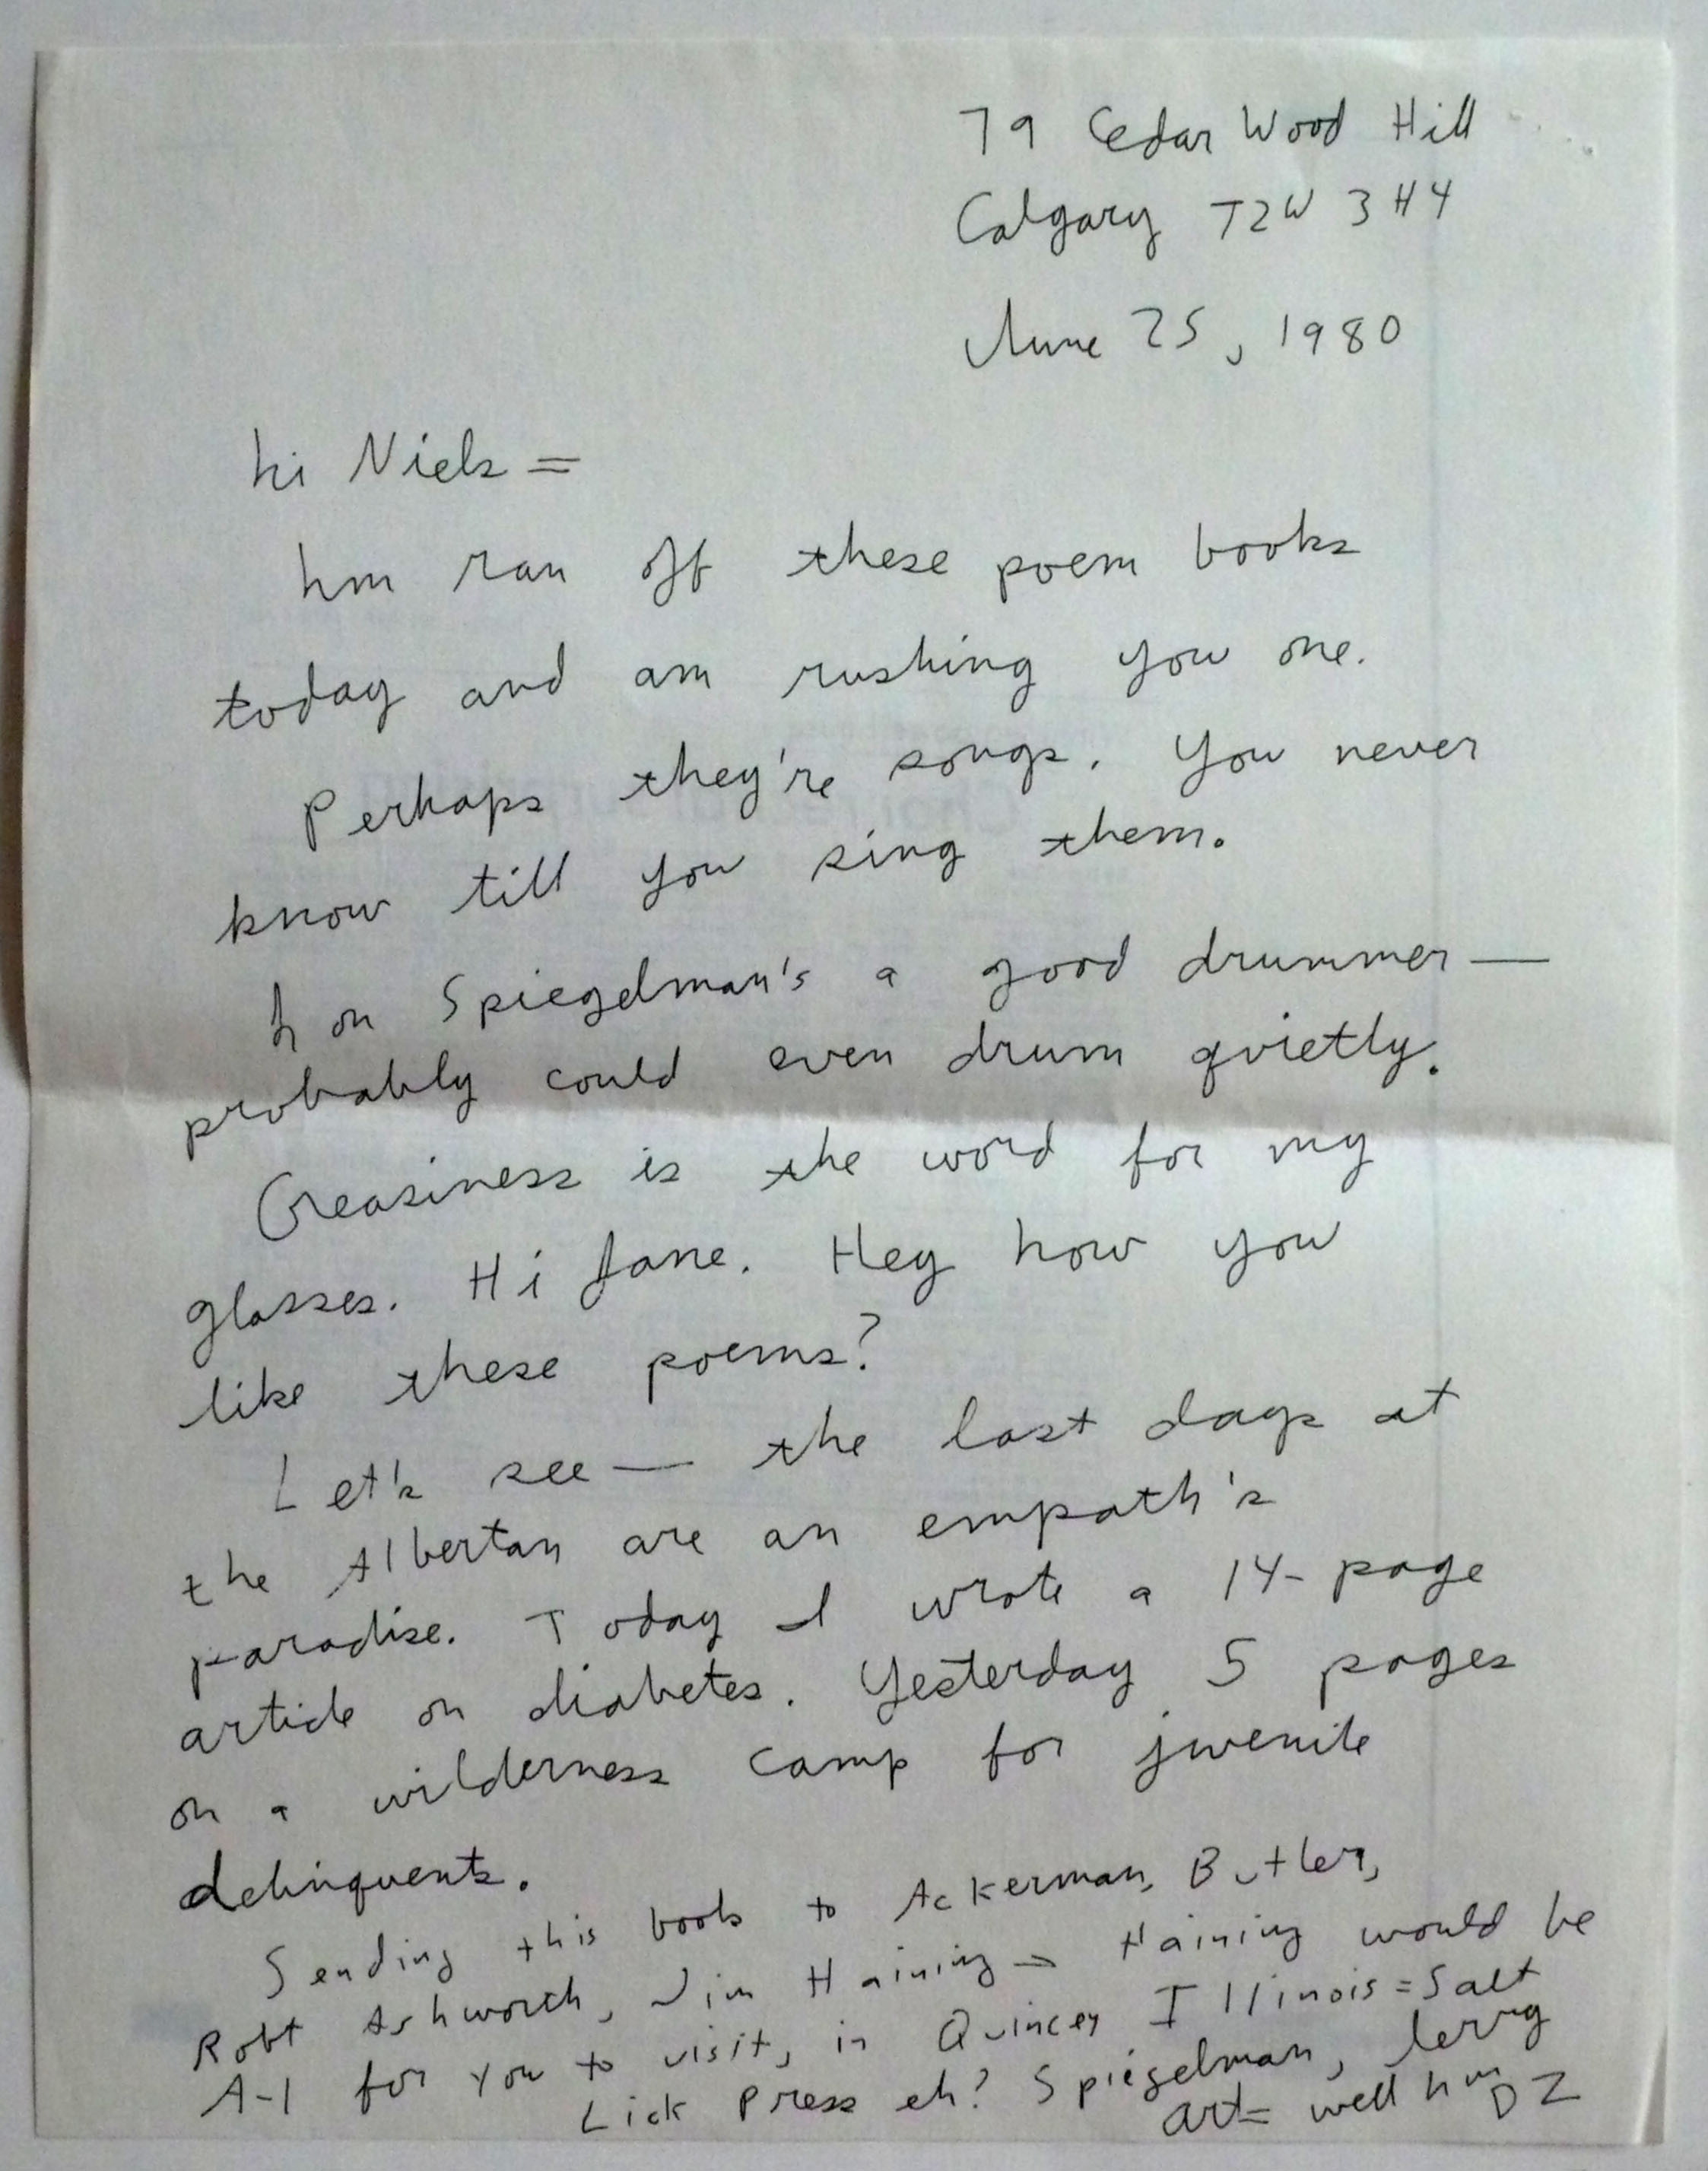 79 Cedar Wood Hill
Calgary T2W 3H4
June 25, 1980
hi Niels =
hm ran off these poem books
today and am rushing you one.
Perhaps they're songs. You never
know till you sing them.
Jon Spiegelman's a good drummer —
probably could even drum quietly.
Greasiness is the word for my
glasses. Hi Jane. Hey how you
like these poems?
Let's see — the last days at
the Albertan are an empath's
paradise. Today I wrote a 14-page
article on diabetes. Yesterday 5 pages
on a wilderness camp for juvenile
delinquents.
Sending this book to Ackerman, Butler,
Robt Ashworth, Jim Haining — Haining would be
A-1 for you to visit, in Quincey Illinois = Salt
Lick Press eh? Spiegelman,
art = well hm DZ